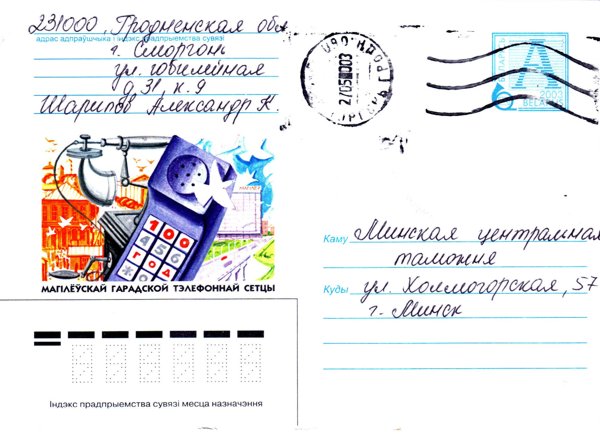 231000, Гродненская обл
адрас адпраўшчыка і індэкс прадпрыемства сувязі
г. Сморгонь
ул. Юбилейная
д. 31, к. 9
Шарипов Александр К.
BELARUS
2002
A
МАГІЛЁЎСКАЙ ГАРАДСКОЙ ТЭЛЕФОННАЙ СЕТЦЫ
100
456
год
Каму Минская центральная
таможня
Куды ул. Холмогорская, 57
г. Минск
Індэкс прадпрыемства сувязі месца назначэння